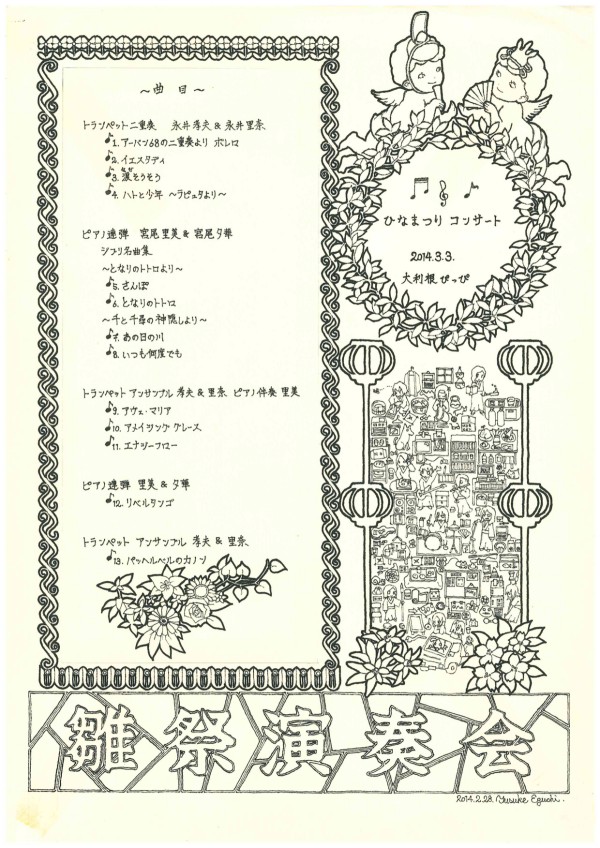 ～曲目～
トランペット二重奏 永井孝夫 & 永井里奈
1. アーバン68の二重奏より ボレロ
2. イエスタディ
3. 涙そうそう
なだ
4. ハトと少年 ～ラピュタより～
ピアノ連弾 宮尾里美 & 宮尾夕華
ジブリ名曲集
～となりのトトロより～
5. さんぽ
6. となりのトトロ
～千と千尋の神隠しより～
7. あの日の川
8. いつも何度でも
トランペット アンサンブル 孝夫 & 里奈 ピアノ伴奏 里美
9. アヴェ・マリア
10. アメイジング グレース
11. エナジーフロー
ピアノ連弾 里美 & 夕華
12. リベルタンゴ
トランペット アンサンブル 孝夫 & 里奈
13. パッヘルベルのカノン
ひなまつり コンサート
2014.3.3.
大利根ぴっぴ
雛祭演奏会
2014.2.28. Yusuke Eguchi.